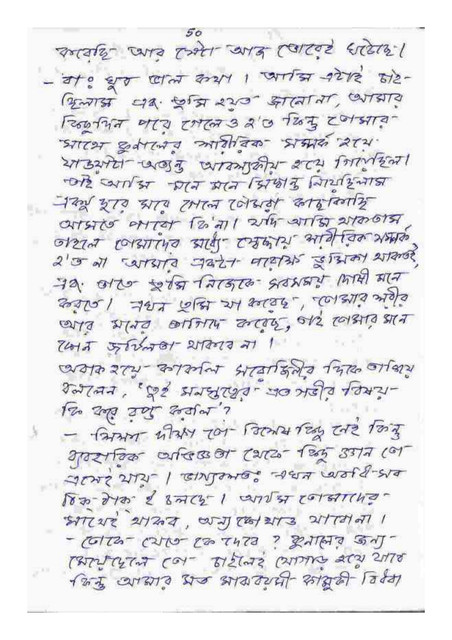 ৮০
করেছি আর সেটা আজ ভোরেই ঘটেছে।
– বাঃ খুব ভাল কথা। আমি এটাই চাই-
ছিলাম এবং তুমি হয়ত জানোনা, আমার
কিছুদিন পরে গেলেও হ'ত কিন্তু তোমার
সাথে কুনালের শারীরিক সম্পর্ক হয়ে
যাওয়াটা অত্যন্ত আবশ্যকীয় হয়ে গিয়েছিল।
তাই আমি মনে মনে সিদ্ধান্ত নিয়েছিলাম
একটু দূরে সরে গেলে তোমরা কাছাকাছি
আসতে পারো কি'না। যদি আমি থাকতাম
তাহলে তোমাদের মধ্যে স্বেচ্ছায় শারীরিক সম্পর্ক
হ'ত না আমার একটা পরোক্ষ ভূমিকা থাকতই,
এবং তাতে তুমি নিজেকে সবসময় দোষী মনে
করতে। এখন তুমি যা করেছ, তোমার শরীর
আর মনের তাগিদে করেছ, তাই তোমার মনে
কোন জটিলতা থাকবে না।
অবাক হয়ে কাকলি সরোজিনীর দিকে তাকিয়ে
বললেন, 'তুই মনস্তত্বের এত গভীর বিষয়-
কি করে রপ্ত করলি'?
– শিক্ষা দীক্ষা তো বিশেষ কিছু নেই কিন্তু
ব্যবহারিক অভিজ্ঞতা থেকে কিছু জ্ঞান তো
এসেই যায়। ভাগ্যবশতঃ এখন অবধি সব
ঠিক-ঠাক ই চলছে। আমি তোমাদের-
সাথেই থাকব, অন্য কোথাও যাবোনা।
– তোকে যেতে কে দেবে? কুনালের জন্য-
মেয়েছেলে তো চাইলেই যোগাড় হয়ে যাবে
কিন্তু আমার মত মাঝবয়সী কামুকী বিধবা